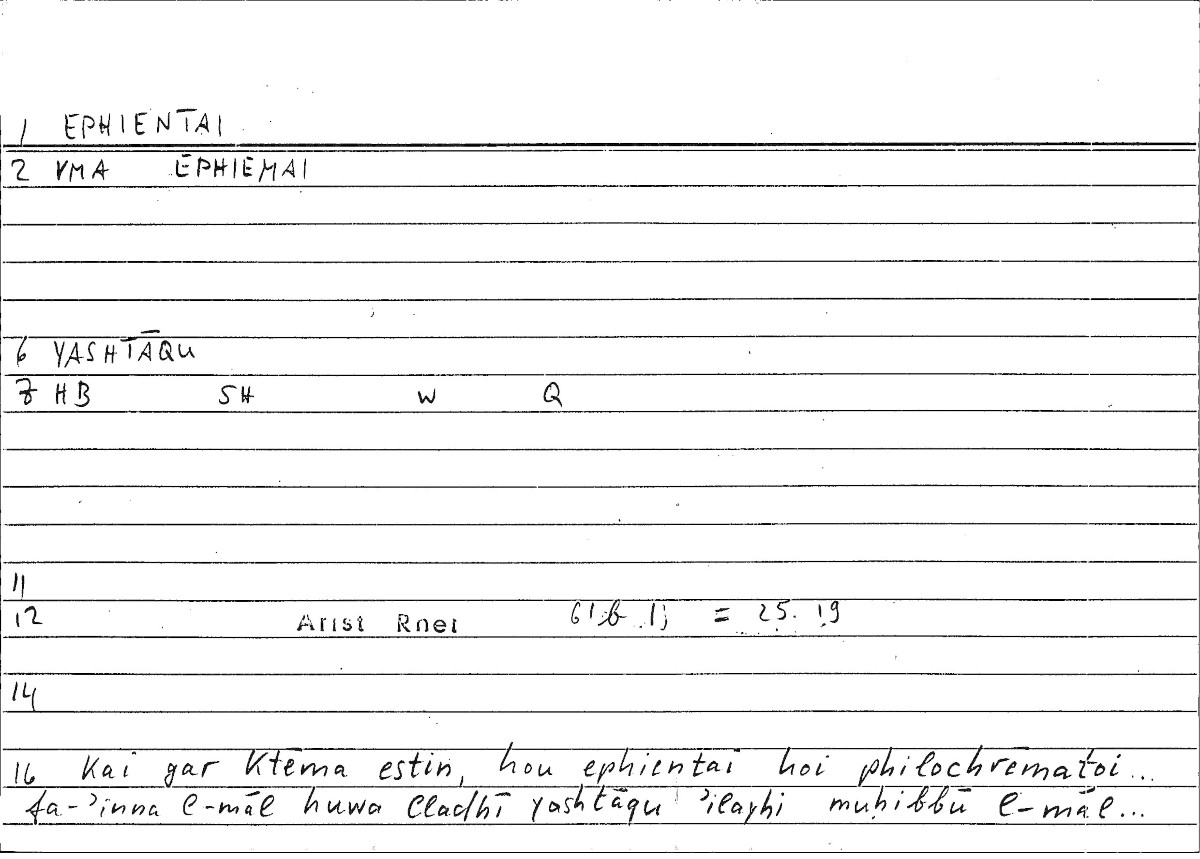 1 EPHIENTAI
2 VMA EPHIEMAI
6 YASHTĀQU
7 HB SH W Q
11
12 Arist Rhet = 25. 19
14
16 Kai gar Ktēma estin, hou ephientai hoi philochrēmatoi...
fa-ʾinna l-māl huwa lladhī yashtāqu ʾilayhi muḥibbū l-māl...